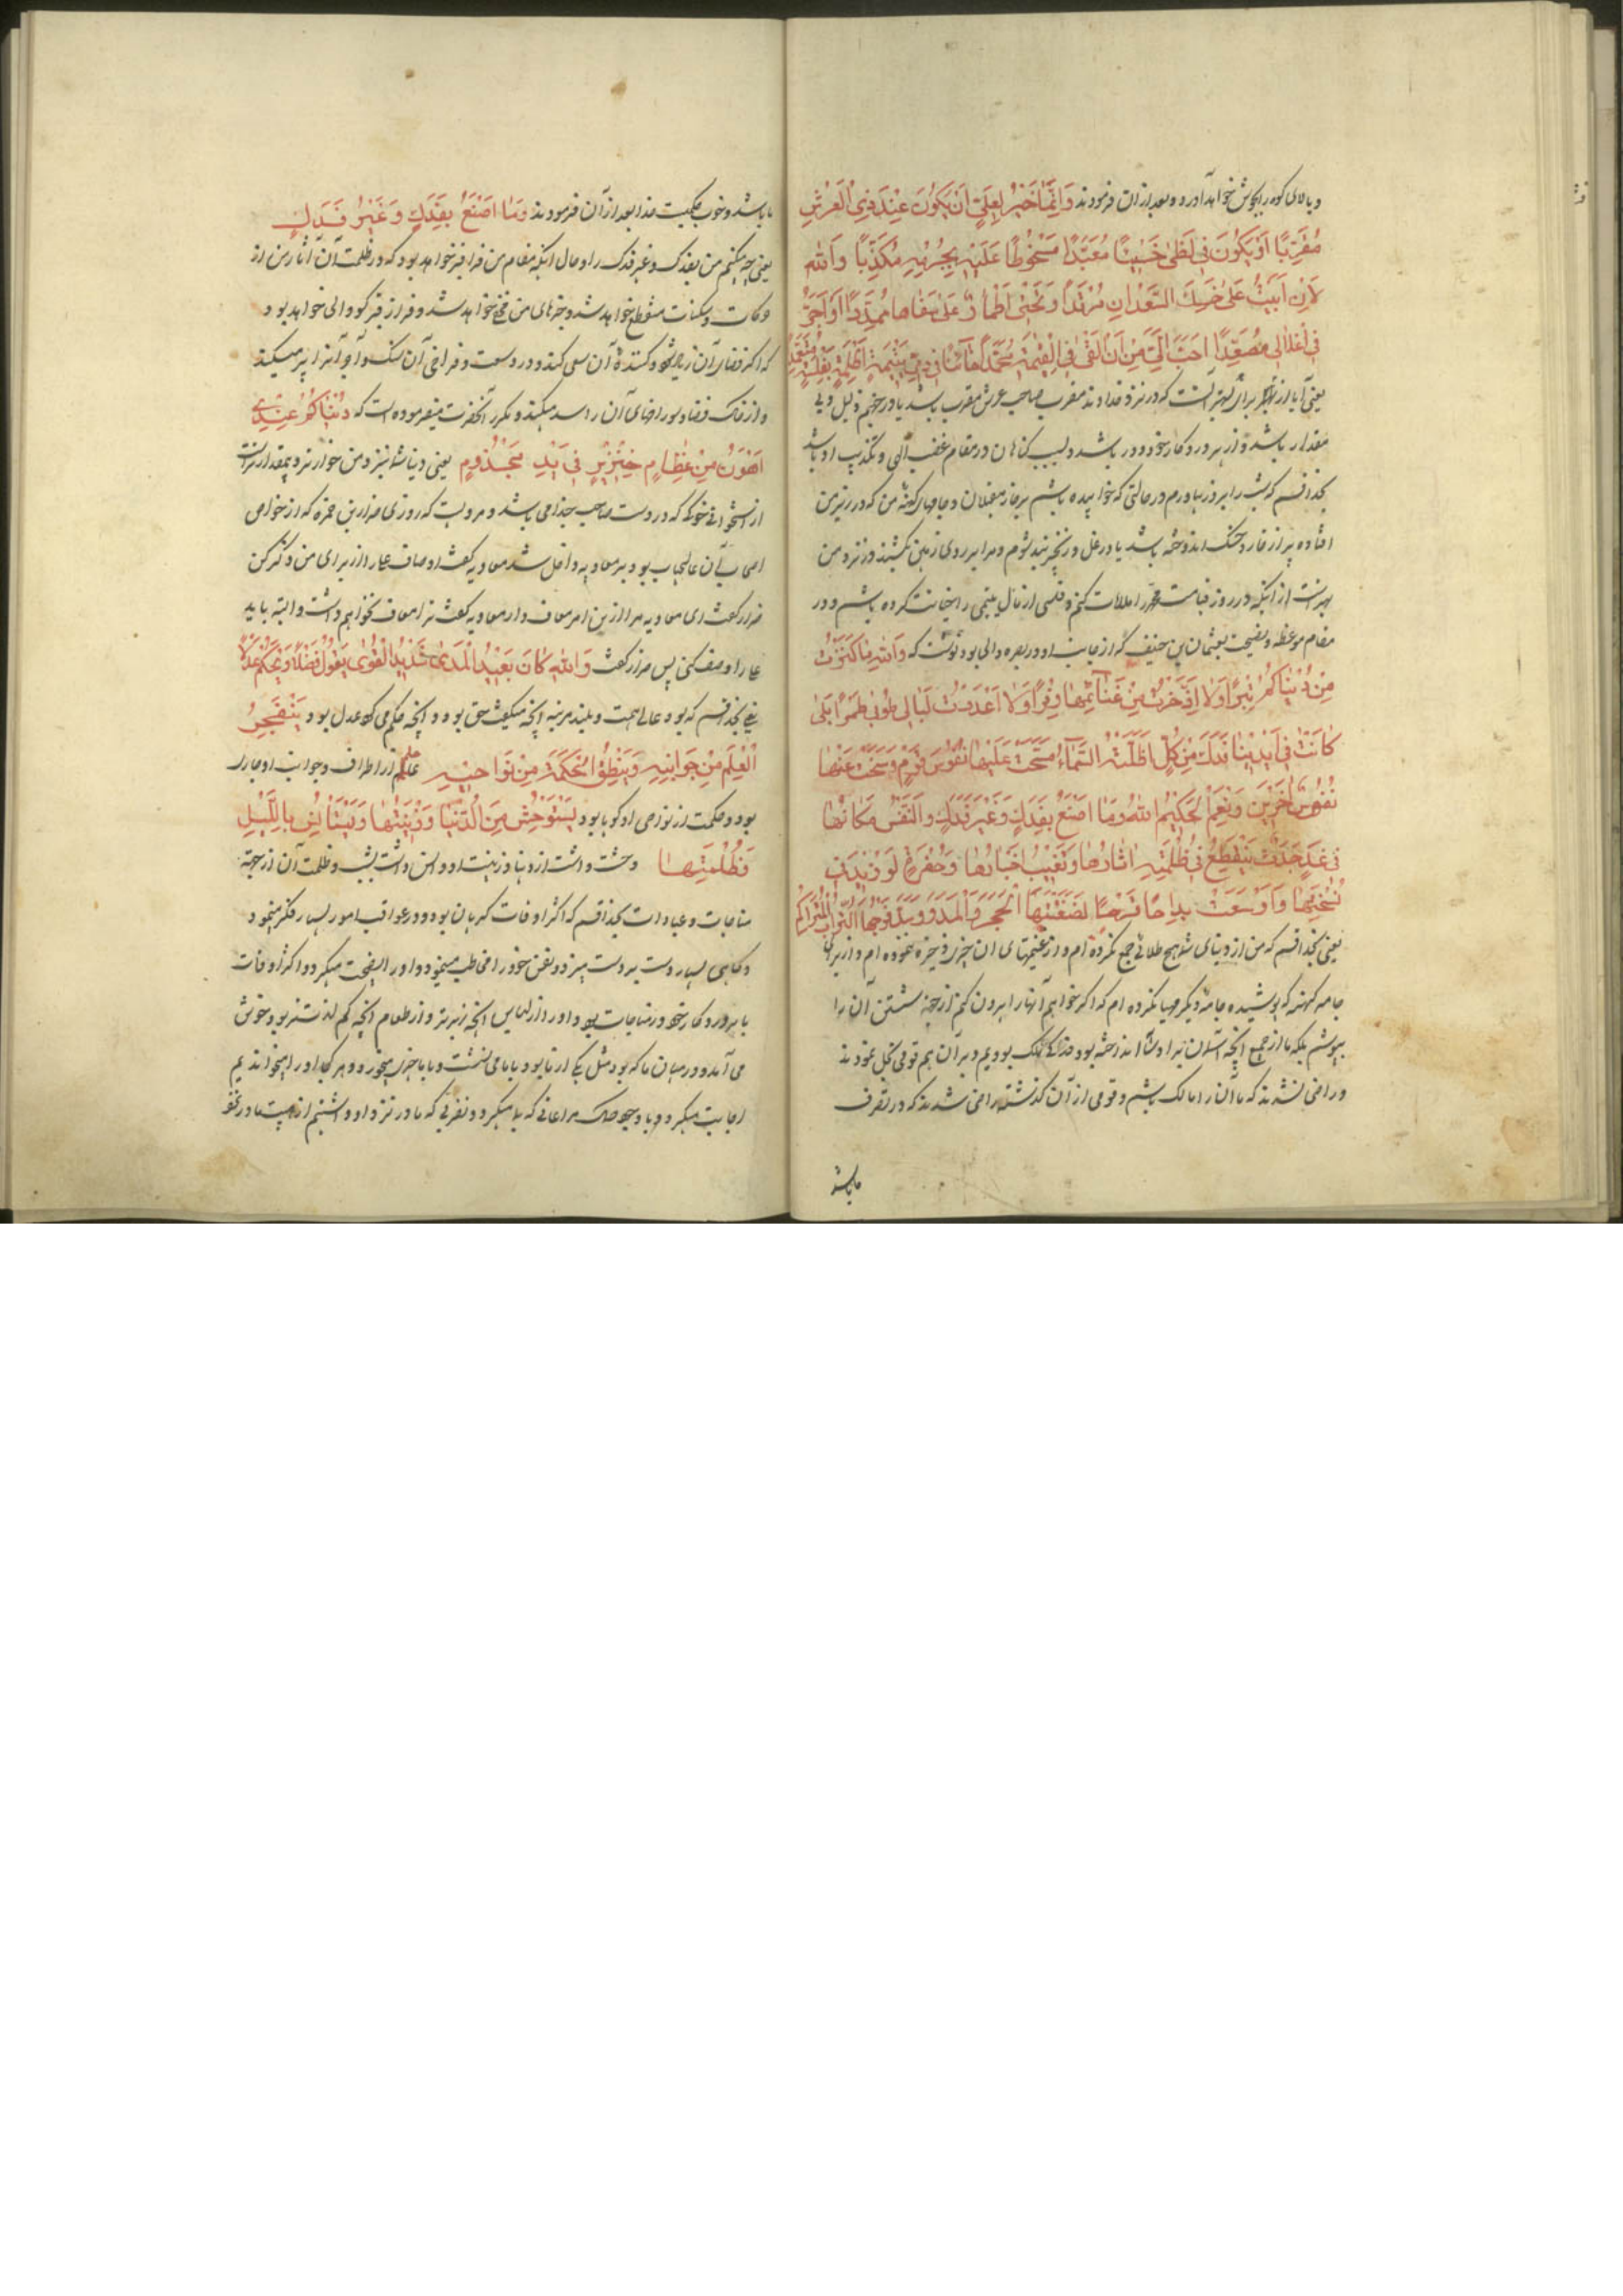 و بالای کوه را بجوش خواهد آورد و بعد از ان فرمودند وَاِنَّمَا خَيْرٌ لِعَلِيٍّ اَنْ يَكُونَ عِنْدَ ذِي الْعَرْشِ
مُقَرَّبًا اَوْ يَكُونَ فِي لَظٰى خَسِيئًا مُعَبَّدًا مَسْخُوطًا عَلَيْهِ بِجُرْمِهِ مُكَذِّبًا وَاللّٰهِ
لَاِنْ اَبَيتُ عَلٰى حَسَكِ السَّعْدَانِ مُرْقَدًا وَتَحْتِي اَطْمَارٌ عَلٰى سَفَاهَا مُمَدَّدًا اَوْ اُجَرَّ
فِي اَغْلَالِي مُصَفَّدًا اَحَبُّ اِلَيَّ مِنْ اَنْ اَلْقٰى فِي الْقِيٰمَةِ مُحَمَّدًا خَآئِنًا فِي ذِي يَتِيمَةٍ اَظْلِمَهُ بِفَلْسِهِ مُتَعَمِّدًا
یعنی آیا از برای بهتر آنست که در نزد خداوند مقرب صاحب عرش مقرب باشد یا در جهنم ذلیل و بی
مقدار باشد و از پروردکار خود دور باشد و بسبب کناهان در مقام غضب الهی و تکذیب او باشد
بخدا قسم که شب را بروز بیاورم در حالتی که خوابیده باشم بر خار مغیلان و جامهای کهنه من که در زیر من
افتاده پر از خار و خسک اندوخته باشد یا در غل و زنجیر بند شوم و مرا بر روی زمین بکشند در نزد من
بهتر است از اینکه در روز قیامت محمد را ملاقات کنم و فلسی از مال یتیمی را خیانت کرده باشم و در
مقام موعظه و نصیحت بعثمان بن حنیف که از جانب او در بصره والی بود نوشت که وَاللّٰهِ مَا كَنَزْتُ
مِنْ دُنْيَاكُمْ تِبْرًا وَلَا ادَّخَرْتُ مِنْ غَنَآئِمِهَا وَفْرًا وَلَا اَعْدَدْتُ لِبَالِي ثَوْبِي طِمْرًا بَلٰى
كَانَتْ فِي اَيْدِينَا فَدَكُ مِنْ كُلِّ مَا اَظَلَّتْهُ السَّمَآءُ فَشَحَّتْ عَلَيْهَا نُفُوسُ قَوْمٍ وَسَخَتْ عَنْهَا
نُفُوسُ اٰخَرِينَ وَنِعْمَ الْحَكَمُ اللّٰهُ وَمَا اَصْنَعُ بِفَدَكٍ وَغَيْرِ فَدَكٍ وَالنَّفْسُ مَكَانُهَا
فِي غَدٍ جَدَثٌ يَنْقَطِعُ فِي ظُلْمَتِهِ اٰثَارُهَا وَتَغِيبُ اَخْبَارُهَا وَحُفْرَةٌ لَوْ زِيدَ فِي
فُسْحَتِهَا وَاَوْسَعَتْ يَدَا حَافِرِهَا لَضَغَطَهَا الْحَجَرُ وَالْمَدَرُ وَسَدَّ فُرَجَهَا التُّرَابُ الْمُتَرَاكِمُ
یعنی بخدا قسم که من از دنیای شما هیچ طلائی جمع نکرده ام و از غنیمتهای ان چیزی ذخیره ننموده ام و از برای
جامه کهنه که پوشیده جامه دیکر مهیا نکرده ام که اکر خواهم آنها را بیرون کنم از جهة شستن آن را
بپوشم بلکه ما از جمیع انچه آسمان بر او سایه انداخته بود فدک را مالک بودیم و بر آن هم قومی بخل نمودند
و راضی نشدند که ما آن را مالک باشیم و قومی از آن گذشته راضی شدند که در تصرف
ما باشد
ما باشد و خوب حکمیست خدا بعد از آن فرمودند وَمَا اَصْنَعُ بِفَدَكٍ وَغَيْرِ فَدَكٍ
یعنی چه میکنم من بفدک و غیر فدک را و حال انکه مقام من فردا قبر خواهد بود که در ظلمت آن آثار من از
حرکات و سکنات منقطع خواهد شد و خبرهای من مخفی خواهد شد و فردا قبر کودالی خواهد بود
که اکر فضای آن زیاد شود و کننده آن سعی کند و در وسعت و فراخی آن سنک و آجر آنرا پر میکند
و از خاک فضا و سوراخهای آن را سد میکند و مکرر آنحضرت میفرموده است که دُنْيَاكُمْ عِنْدِي
اَهْوَنُ مِنْ عِظَامِ خِنْزِيرٍ فِي يَدِ مَجْذُومٍ یعنی دنیا شما نزد من خوارتر و بیمقدارتر است
از استخوان خوکی که در دست صاحب جذامی باشد و مرویست که روزی ضرار بن ضمره که از خواص
اصحاب آن عالیجناب بود بر معاویه داخل شد معاویه کفت اوصاف علی را از برای من ذکر کن
ضرار کفت ای معاویه مرا از این امر معاف دار معاویه کفت ترا معاف نخواهم داشت و البته باید
علی را وصف کنی پس ضرار کفت وَاللّٰهِ كَانَ بَعِيدَ الْمَدٰى شَدِيدَ الْقُوٰى يَقُولُ فَصْلًا وَيَحْكُمُ عَدْلًا
یعنی بخدا قسم که بود عالی همت و بلند مرتبه انچه میکفت حق بود و انچه حکم می کرد عدل بود يَتَفَجَّرُ
الْعِلْمُ مِنْ جَوَانِبِهِ وَيَنْطِقُ الْحِكْمَةُ مِنْ نَوَاحِيهِ علم از اطراف و جوانب او جاری
بود و حکمت از نواحی او کویا بود يَسْتَوْحِشُ مِنَ الدُّنْيَا وَزِينَتِهَا وَيَسْتَأْنِسُ بِاللَّيْلِ
وَظُلْمَتِهَا وحشت داشت از دنیا و زینت او و انس داشت بشب و ظلمت آن از جهة
مناجات و عبادات بخدا قسم که اکثر اوقات کریان بود و در عواقب امور بسیار فکر مینمود
و کاهی بسیار دست بر دست میزد و نفس خود را مخاطب مینمود و او را نصیحت میکرد و اکثر اوقات
با پروردکار خود در مناجات بود و او را از لباس انچه زبرتر و از طعام انچه کم لذت تر بود خوش
می آمد و در میان ما که بود مثل یکی از ما بود با ما می نشست و با ما چیز میخورد و هر کجا او را میخواندیم
اجابت میکرد و با وجود مراعاتی که با ما میکرد و تقربی که ما در نزد او داشتیم از هیبت ما در نزد